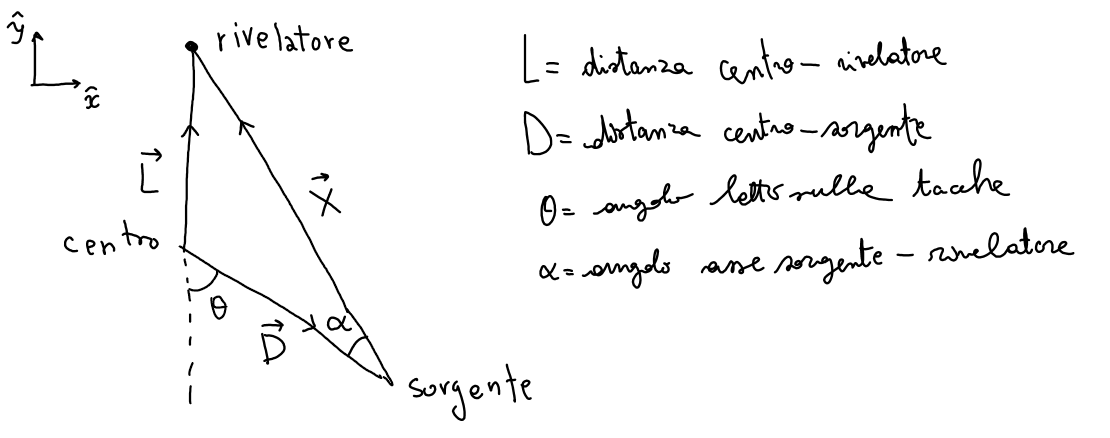 ŷ
x̂
rivelatore
L⃗
X⃗
centro
θ
D⃗
α
sorgente
L= distanza centro-rivelatore
D= distanza centro-sorgente
θ= angolo letto sulle tacche
α= angolo asse sorgente-rivelatore